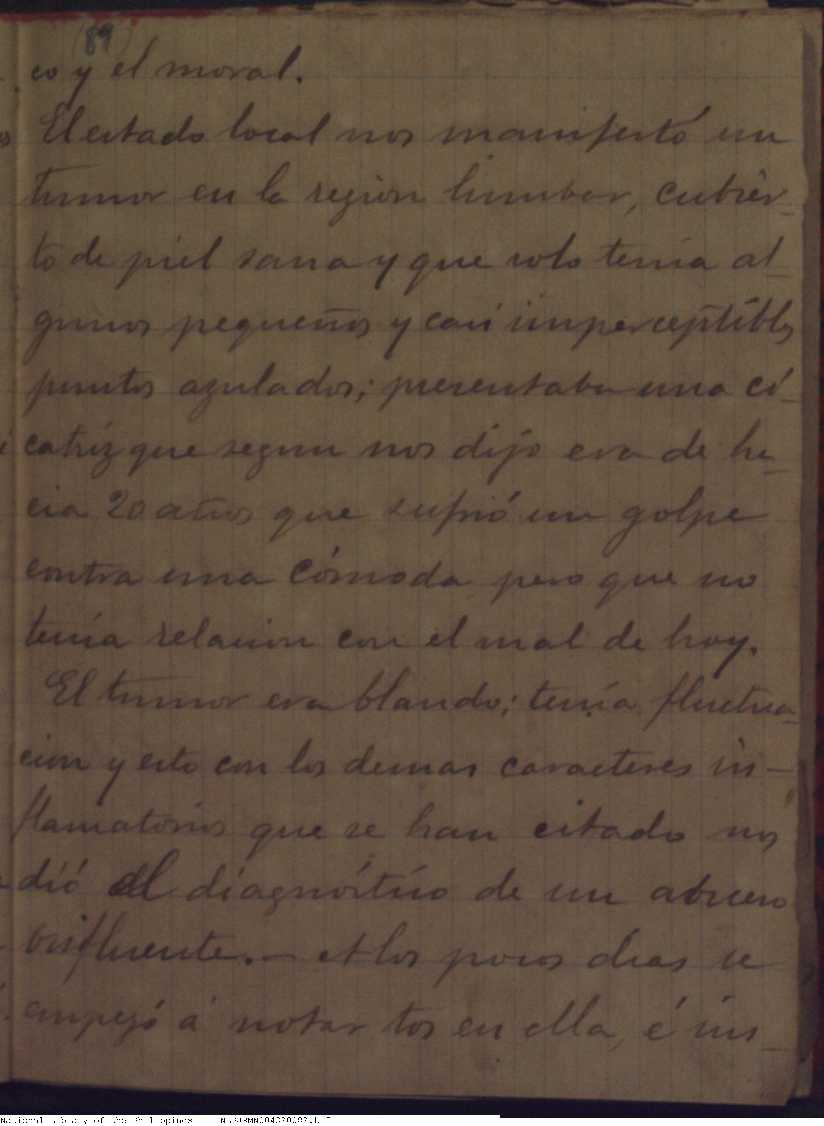 (89)
co y el moral.
El estado local nos manifestó un
tumor en la región lumbar, cubier-
to de piel sana y que solo tenía al-
gunos pequeños y casi imperceptibles
puntos azulados; presentaba una ci-
catriz que segun nos dijo era de ha-
cia 20 años que sufrió un golpe
contra una cómoda pero que no
tenía relacion con el mal de hoy.
El tumor era blando; tenía fluctua-
cion y esto con los demas caracteres in-
flamatorios que se han citado nos
dió el diagnóstico de un absceso
osifluente.— A los pocos dias se
empezó á notar tos en ella, é ins-
National Library of the Philippines